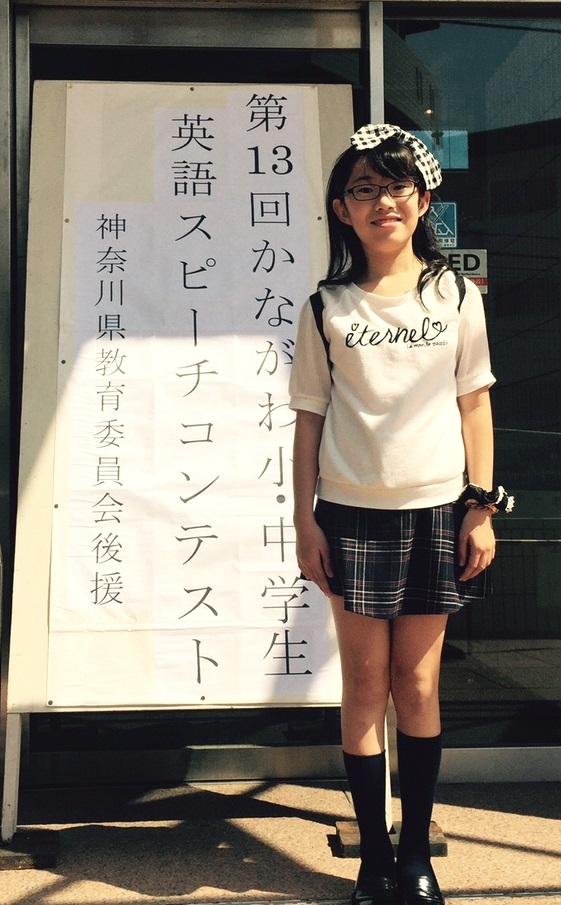 第13回かながわ小・中学生
英語スピーチコンテスト
神奈川県教育委員会後援
éternel